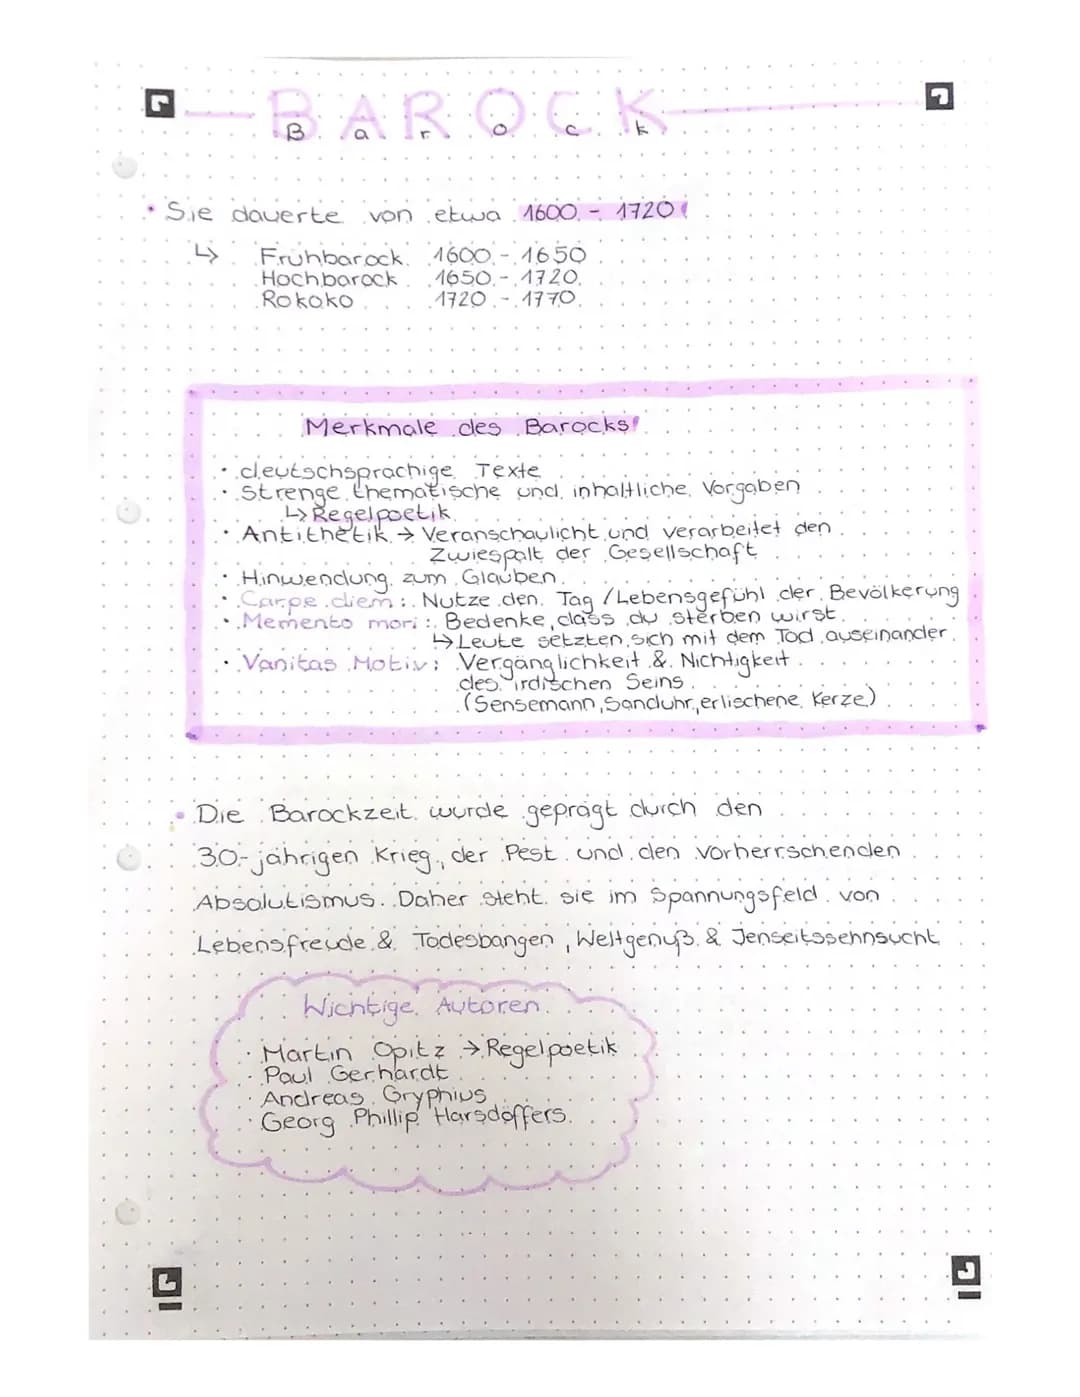 BAROCK
Barock
• Sie dauerte von etwa 1600 - 1720!
↳ Frühbarock 1600 - 1650
Hochbarock 1650 - 1720
Rokoko 1720 - 1770
Merkmale des Barocks!
• deutschsprachige Texte
• Strenge thematische und inhaltliche Vorgaben
↳ Regelpoetik
• Antithetik → Veranschaulicht und verarbeitet den
Zwiespalt der Gesellschaft
• Hinwendung zum Glauben
• Carpe diem: Nutze den Tag / Lebensgefühl der Bevölkerung
• Memento mori: Bedenke, dass du sterben wirst
↳ Leute setzten sich mit dem Tod auseinander
• Vanitas Motiv: Vergänglichkeit & Nichtigkeit
des irdischen Seins
(Sensemann, Sanduhr, erlischene Kerze)
• Die Barockzeit wurde geprägt durch den
30-jährigen Krieg, der Pest und den vorherrschenden
Absolutismus. Daher steht sie im Spannungsfeld von
Lebensfreude & Todesbangen, Weltgenuß & Jenseitssehnsucht
Wichtige Autoren
• Martin Opitz → Regelpoetik
• Paul Gerhardt
• Andreas Gryphius
• Georg Phillip Harsdöffers